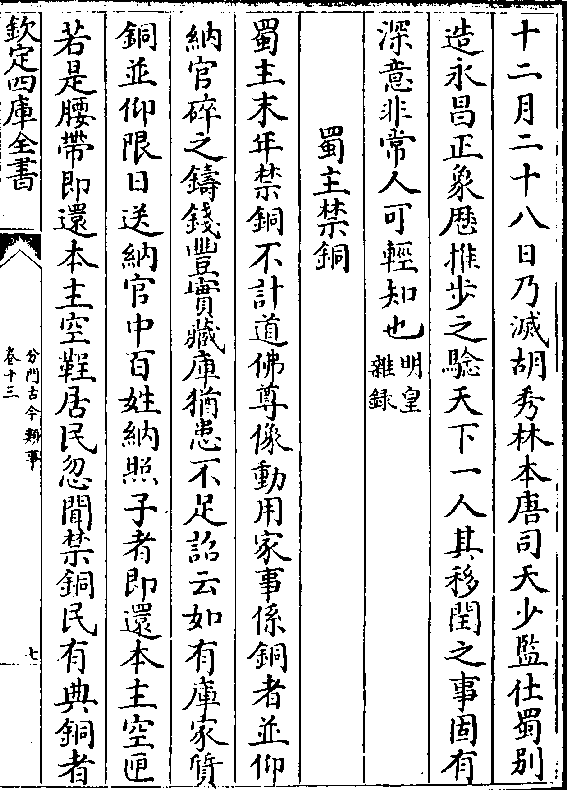 十二月二十八日乃滅胡秀林本唐司天少監仕蜀别
造永昌正象厯推步之驗天下一人其移閏之事固有
深意非常人可輕知也明皇
雜録
蜀主禁銅
蜀主末年禁銅不計道佛尊像動用家事係銅者並仰
納官碎之鑄錢豐實藏庫猶患不足詔云如有庫家質
銅並仰限日送納官中百姓納照子者即還本主空匣
若是腰帶即還本主空鞓居民忽聞禁銅民有典銅者
欽定四庫全書
分門古今類事
卷十三
七